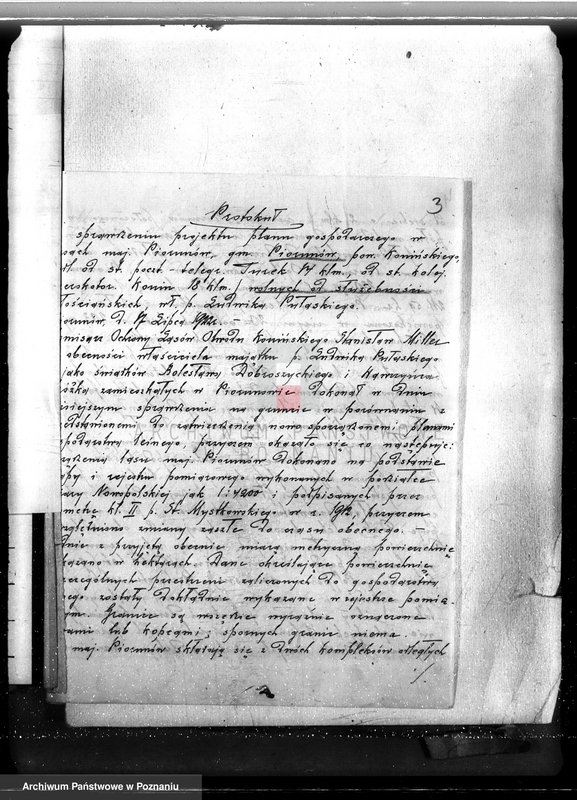 3
Protokuł
sprawdzenia projektu planu gospodarczego w
maj. Piorunów, gm. Piorunów pow. Konińskiego,
od st. poczt.-telegr. Turek 17 klm., od st. kolej.
Konin 18 klm. wolnych od służebności
włościańskich, wł. p. Ludwika Pułaskiego.
Piorunów, d. 17 Lipca 1922 r. –
Komisarz Ochrony Lasów Obwodu Konińskiego Stanisław Miller
obecności właściciela majątku p. Ludwika Pułaskiego
jako świadków Bolesława Dobroszyckiego i Kawrzyńca
zamieszkałych w Piorunowie dokonał w dniu
dzisiejszym sprawdzenia na gruncie w porównaniu z
przedstawionemi do zatwierdzenia nowosporządzonemi planami
gospodarstwa leśnego, przyczem okazało się co następuje:
lasu maj. Piorunów dokonano na podstawie
mapy i rejestru pomiarowego wykonanych w podziałce
miary Nowopolskiej jak 1:4200 i podpisanych przez
kl. II p. St. Mystkowskiego w r. 1912, przyczem
uwzględniono zmiany zaszłe do czasu obecnego. –
z przyjętą obecnie miarą metryczną powierzchnię
wykazano w hektarach. Dane określające powierzchnię
szczególnych przestrzeni zaliczonych do gospodarstwa
leśnego zostały dokładnie wykazane w rejestrze pomia-
rowym. Granice są wszędzie wyraźnie oznaczone
lub kopcami; spornych granic niema.
maj. Piorunów składają się z dwóch kompleksów odległych
./.
Archiwum Państwowe w Poznaniu